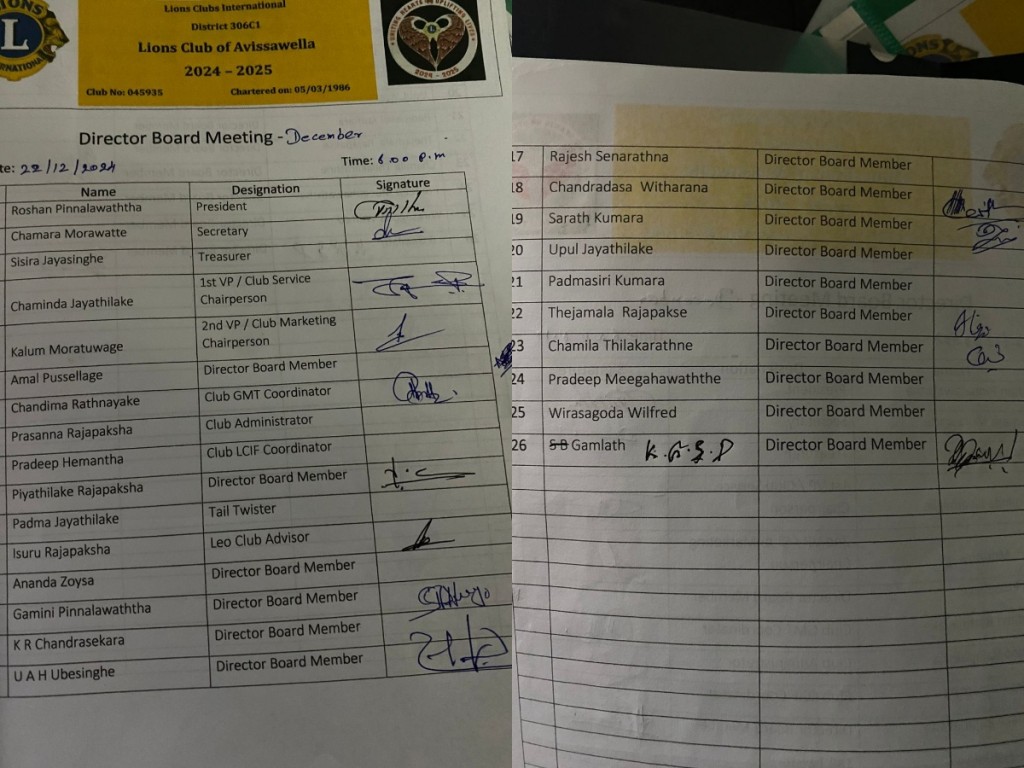 LIONS
L
INTERNATIONAL
Lions Clubs International
District 306C1
Lions Club of Avissawella
2024 – 2025
Club No: 045935 Chartered on: 05/03/1986
2024 - 2025
Director Board Meeting - December
te: 22/12/2024 Time: 6.00 p.m
Name Designation Signature
Roshan Pinnalawaththa President
Chamara Morawatte Secretary
Sisira Jayasinghe Treasurer
Chaminda Jayathilake 1st VP / Club Service Chairperson
Kalum Moratuwage 2nd VP / Club Marketing Chairperson
Amal Pussellage Director Board Member
Chandima Rathnayake Club GMT Coordinator
Prasanna Rajapaksha Club Administrator
Pradeep Hemantha Club LCIF Coordinator
Piyathilake Rajapaksha Director Board Member
Padma Jayathilake Tail Twister
Isuru Rajapaksha Leo Club Advisor
Ananda Zoysa Director Board Member
Gamini Pinnalawaththa Director Board Member
K R Chandrasekara Director Board Member
U A H Ubesinghe Director Board Member
17 Rajesh Senarathna Director Board Member
18 Chandradasa Witharana Director Board Member
19 Sarath Kumara Director Board Member
20 Upul Jayathilake Director Board Member
21 Padmasiri Kumara Director Board Member
22 Thejamala Rajapakse Director Board Member
23 Chamila Thilakarathne Director Board Member
24 Pradeep Meegahawaththe Director Board Member
25 Wirasagoda Wilfred Director Board Member
26 S B Gamlath K.G.S.D Director Board Member